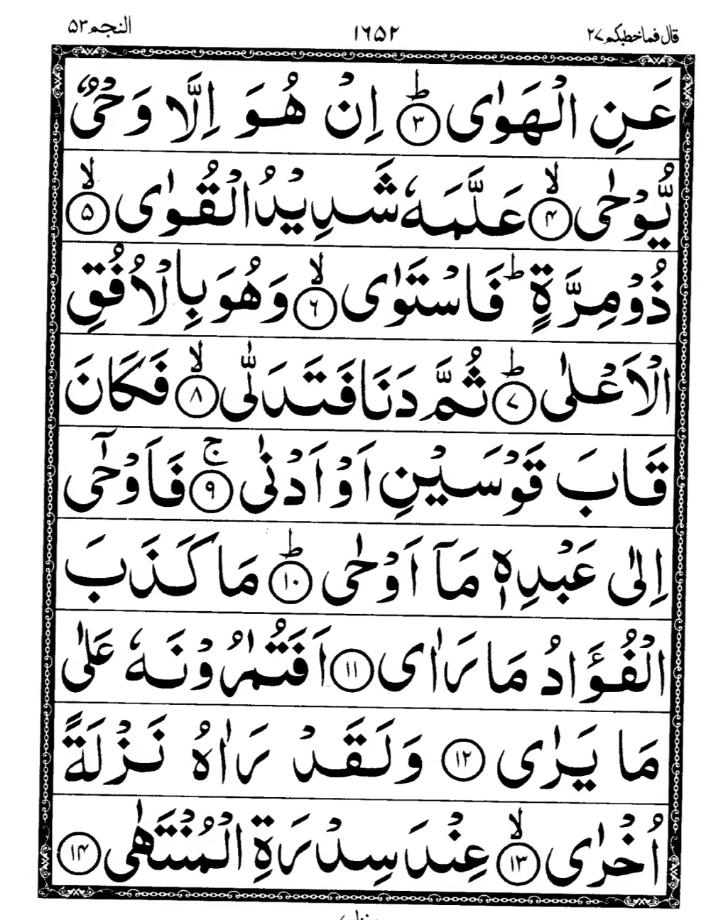 قال فماخطبكم ٢٧ ١٦٥٢ النجم ٥٣
عَنِ الْهَوٰى ؕ﴿۳﴾ اِنْ هُوَ اِلَّا وَحْیٌ
یُّوْحٰى ۙ﴿۴﴾ عَلَّمَهٗ شَدِیْدُ الْقُوٰى ۙ﴿۵﴾
ذُوْ مِرَّةٍ ؕ فَاسْتَوٰى ۙ﴿۶﴾ وَهُوَ بِالْاُفُقِ
الْاَعْلٰى ؕ﴿۷﴾ ثُمَّ دَنَا فَتَدَلّٰى ۙ﴿۸﴾ فَكَانَ
قَابَ قَوْسَیْنِ اَوْ اَدْنٰى ۚ﴿۹﴾ فَاَوْحٰۤى
اِلٰى عَبْدِهٖ مَاۤ اَوْحٰى ؕ﴿۱۰﴾ مَا كَذَبَ
الْفُؤَادُ مَا رَاٰى ﴿۱۱﴾ اَفَتُمٰرُوْنَهٗ عَلٰى
مَا یَرٰى ﴿۱۲﴾ وَلَقَدْ رَاٰهُ نَزْلَةً
اُخْرٰى ۙ﴿۱۳﴾ عِنْدَ سِدْرَةِ الْمُنْتَهٰى ﴿۱۴﴾